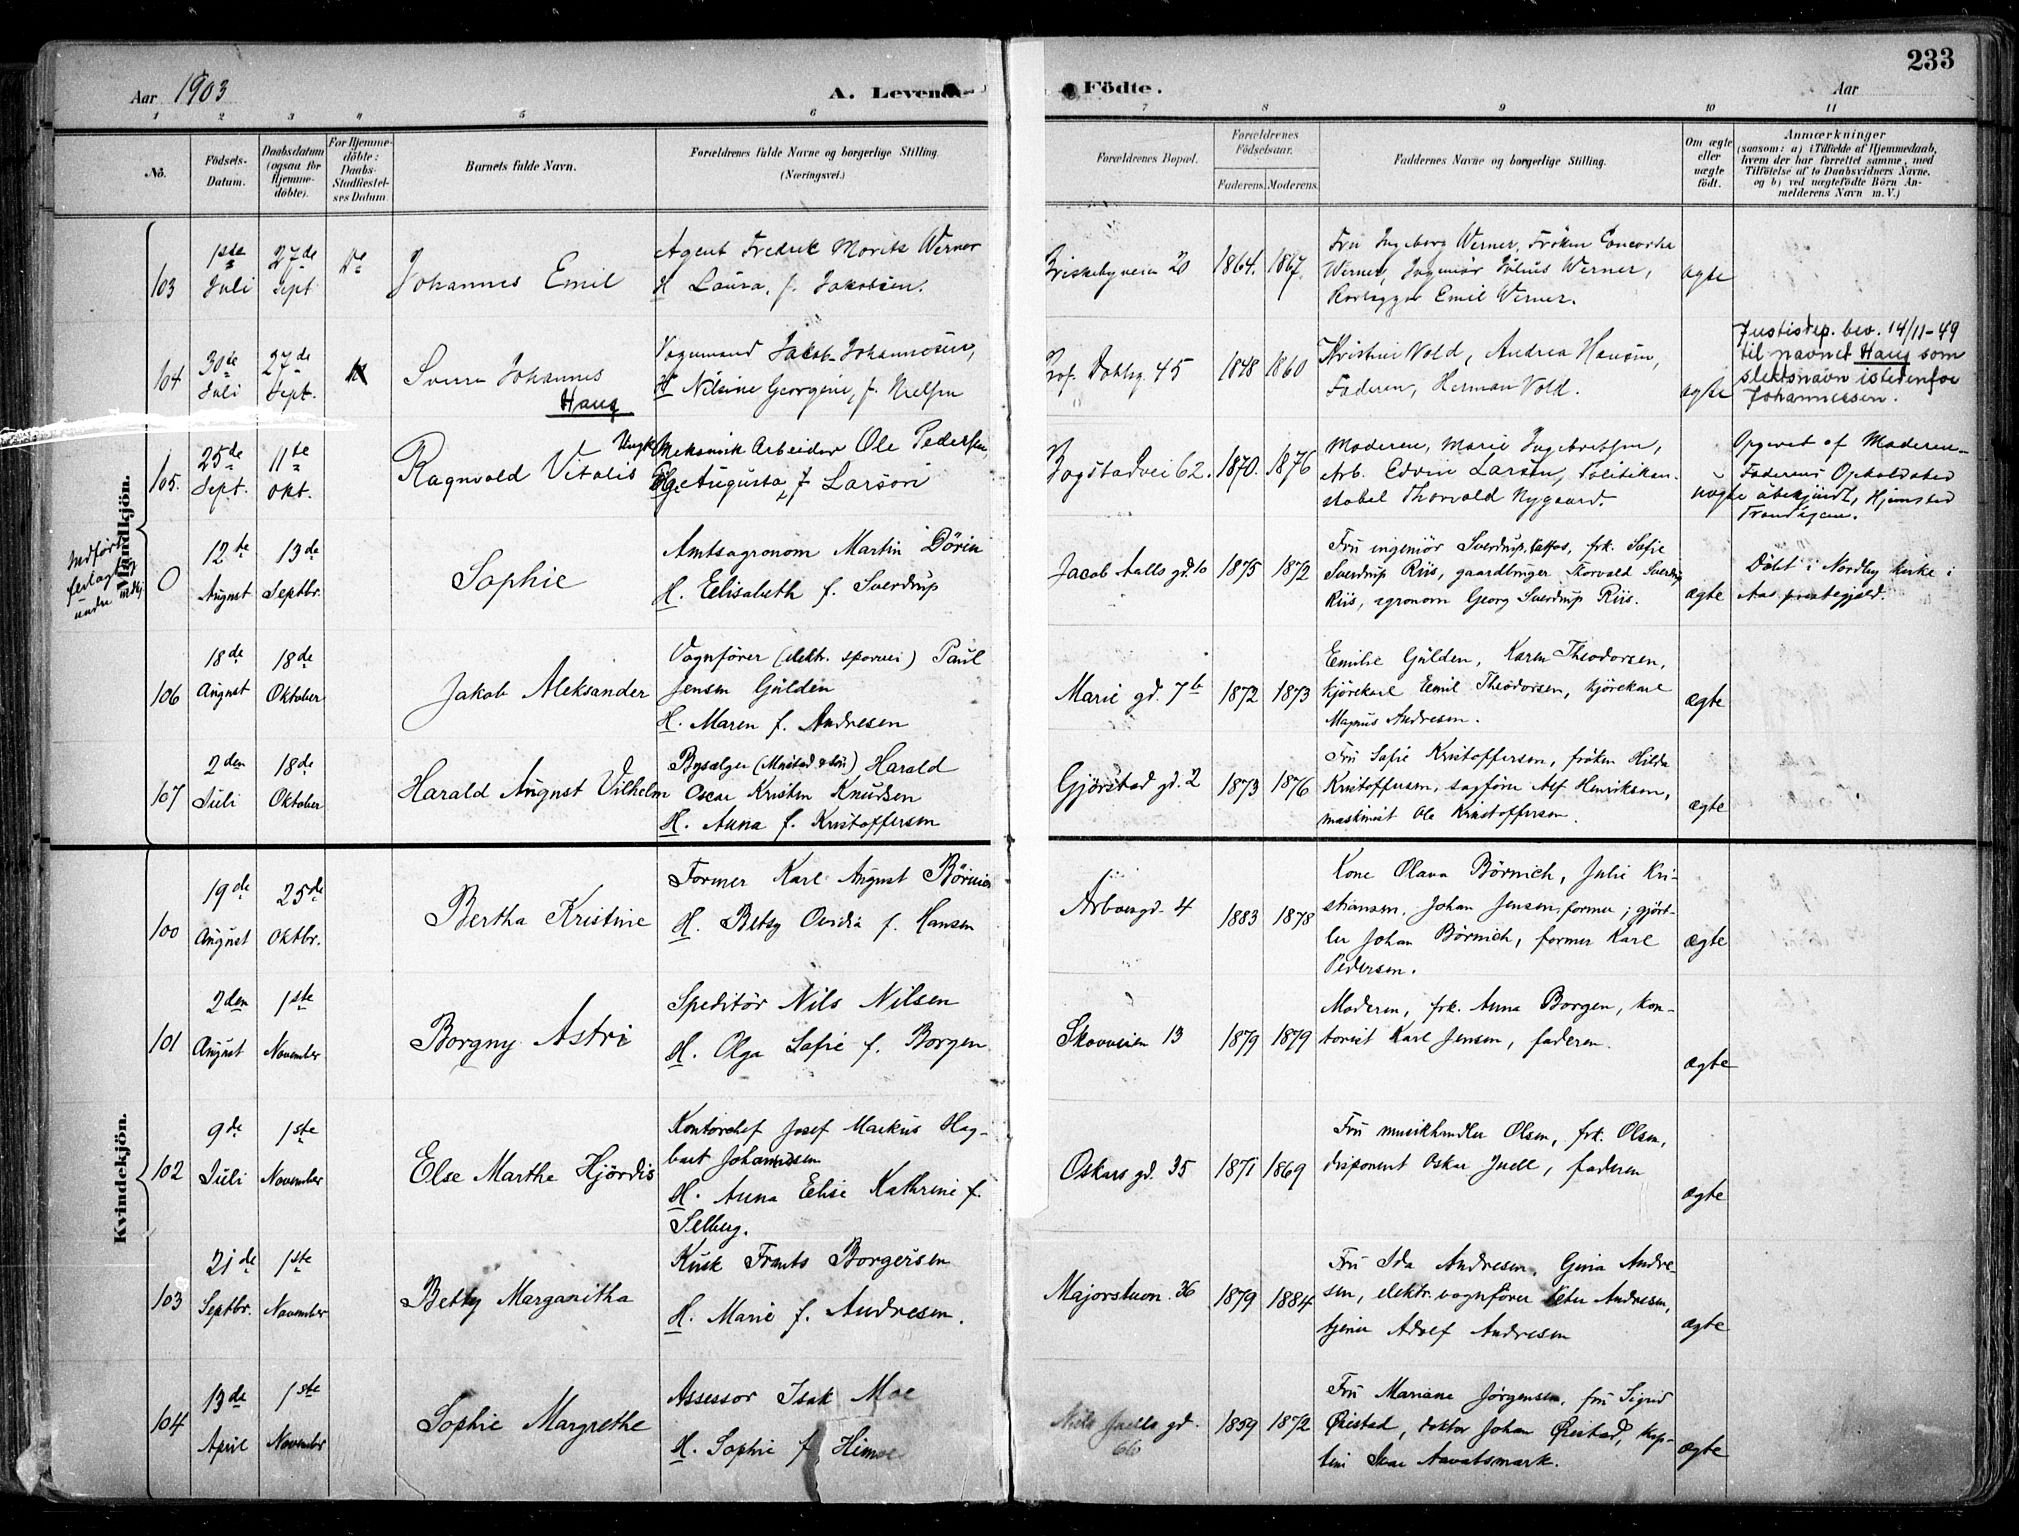 233
Aar 1903 A. Levende Födte. Aar
1 2 3 4 5 6 7 8 9 10 11
No. Födsels-Datum. Daabsdatum (ogsaa for Hjemmedöbte). For Hjemmedöbte: Daabs-Stadfæstelses Datum. Barnets fulde Navn. Forældrenes fulde Navne og borgerlige Stilling. (Næringsvei.) Forældrenes Bopæl. Forældrenes Födselsaar. Faderens. Moderens. Faddernes Navne og borgerlige Stilling. Om ægte eller uægte födt. Anmærkninger (saasom: a) i Tilfælde af Hjemmedaab, hvem der har forrettet samme, med Tilföielse af to Daabsvidners Navne. og b) ved uægtefödte Börn Anmelderens Navn m. V.)
Mandkjön.
103 1ste Juli 27de Sept
Johannes Emil
Agent Fredrik Moritz Werner
H Laura, f. Jakobsen.
Briskebyveien 20 1864. 1867.
Fru Ingeborg Werner, Fröken Concordia
Werner, Ingeniör Julius Werner,
Rörlægger Emil Werner.
ægte
104 30te Juli 27de Sept.
Sverre Johannes
Haug
Vognmand Jakob Johannesen,
H Nilsine Georgine, f. Nielsen
Prof. Dahlsg. 45 1848 1860
Kristine Vold, Andrea Hansen,
Faderen, Herman Vold.
ægte
Justisdep. bev. 14/11-49
til navnet Haug som
slektsnavn istedenfor
Johannessen.
105. 25de Sept. 11te Okt.
Ragnvald Vitalis
Ungk. Mekanisk Arbeider Ole Pedersen,
Pige Augusta, f Larson
Bogstadvei 62. 1870. 1876
Moderen, Marie Ingebretsen,
Arb. Edvin Larsen, Politikon-
stabel Thorvald Nygaard.
uægte
Opgivet af Moderen-
Faderens Opholdsted
übekjendt, Hjemsted
Trondhjem.
Indført
0 12te August 13de Septbr.
Sophie
Amtsagronom Martin Dörin
H. Elisabeth f. Sverdrup
Jacob Aalls gd. 10 1875 1872
Fru ingeniör Sverdrup, frk. Sofie
Sverdrup Riis, gaardbruger Thorvald Sverdrup
Riis, agronom Georg Sverdrup Riis.
ægte
Döbt i Nordby kirke i
Aas prestegjeld.
106 18de August 18de Oktober
Jakob Aleksander
Vognförer (elektr. sporvei) Paul
Jensen Gulden
H. Maren f. Andresen
Marie gd. 7b 1872 1873
Emilie Gulden, Karen Theodorsen,
kjörekarl Emil Theodorsen, kjörekarl
Magnus Andresen.
ægte
107 2den Juli 18de Oktober
Harald August Vilhelm
Bysælger (Mustad & sön) Harald
Oscar Kristen Knudsen
H. Anna f. Kristoffersen
Gjörstad gd. 2 1873 1876
Fru Sofie Kristoffersen, fröken Hilda
Kristoffersen, sagförer Alf Henriksen,
maskinist Ole Kristoffersen.
ægte
Kvindekjön.
100 19de August 25de Oktbr.
Bertha Kristine
Former Karl August Börnich
H. Betsy Ovidia f. Hansen
Arboesgd. 4 1883 1878
Kone Olava Börnich, Julie Kri-
stiansen, Johan Jensen, former; gjört-
ler Johan Börnich, former Karl
Pedersen.
ægte
101 2den August 1ste November
Borgny Astri
Speditör Nils Nilsen
H. Olga Sofie f. Borgen
Skovveien 13 1879 1879
Moderen, frk. Anna Borgen, kon-
torist Karl Jensen, faderen.
ægte
102 9de Juli 1ste November
Else Marthe Hjördis
Kontorchef Josef Markus Hag-
bart Johannesen
H. Anna Elise Kathrine f.
Selberg.
Oskars gd. 35 1871 1869
Fru musikhandler Olsen, frk. Olsen,
disponent Oskar Juell, faderen
ægte
103 21de Septbr. 1ste November
Betty Margaritha
Kusk Frants Borgersen
H. Marie f. Andresen.
Majorstuen 36 1879 1884
Fru Ida Andresen, Gina Andre-
sen, elektr. vognförer Peter Andresen,
tjener Adolf Andresen
ægte
104 13de April 1ste November
Sophie Margrethe
Assessor Isak Moe
H. Sophie f
Niels Juells gd. 66 1859 1872
Fru Mariane Jörgensen, fru Sigrid
Örestad, doktor Johan Örestad, kap-
tein Aavatsmark.
ægte